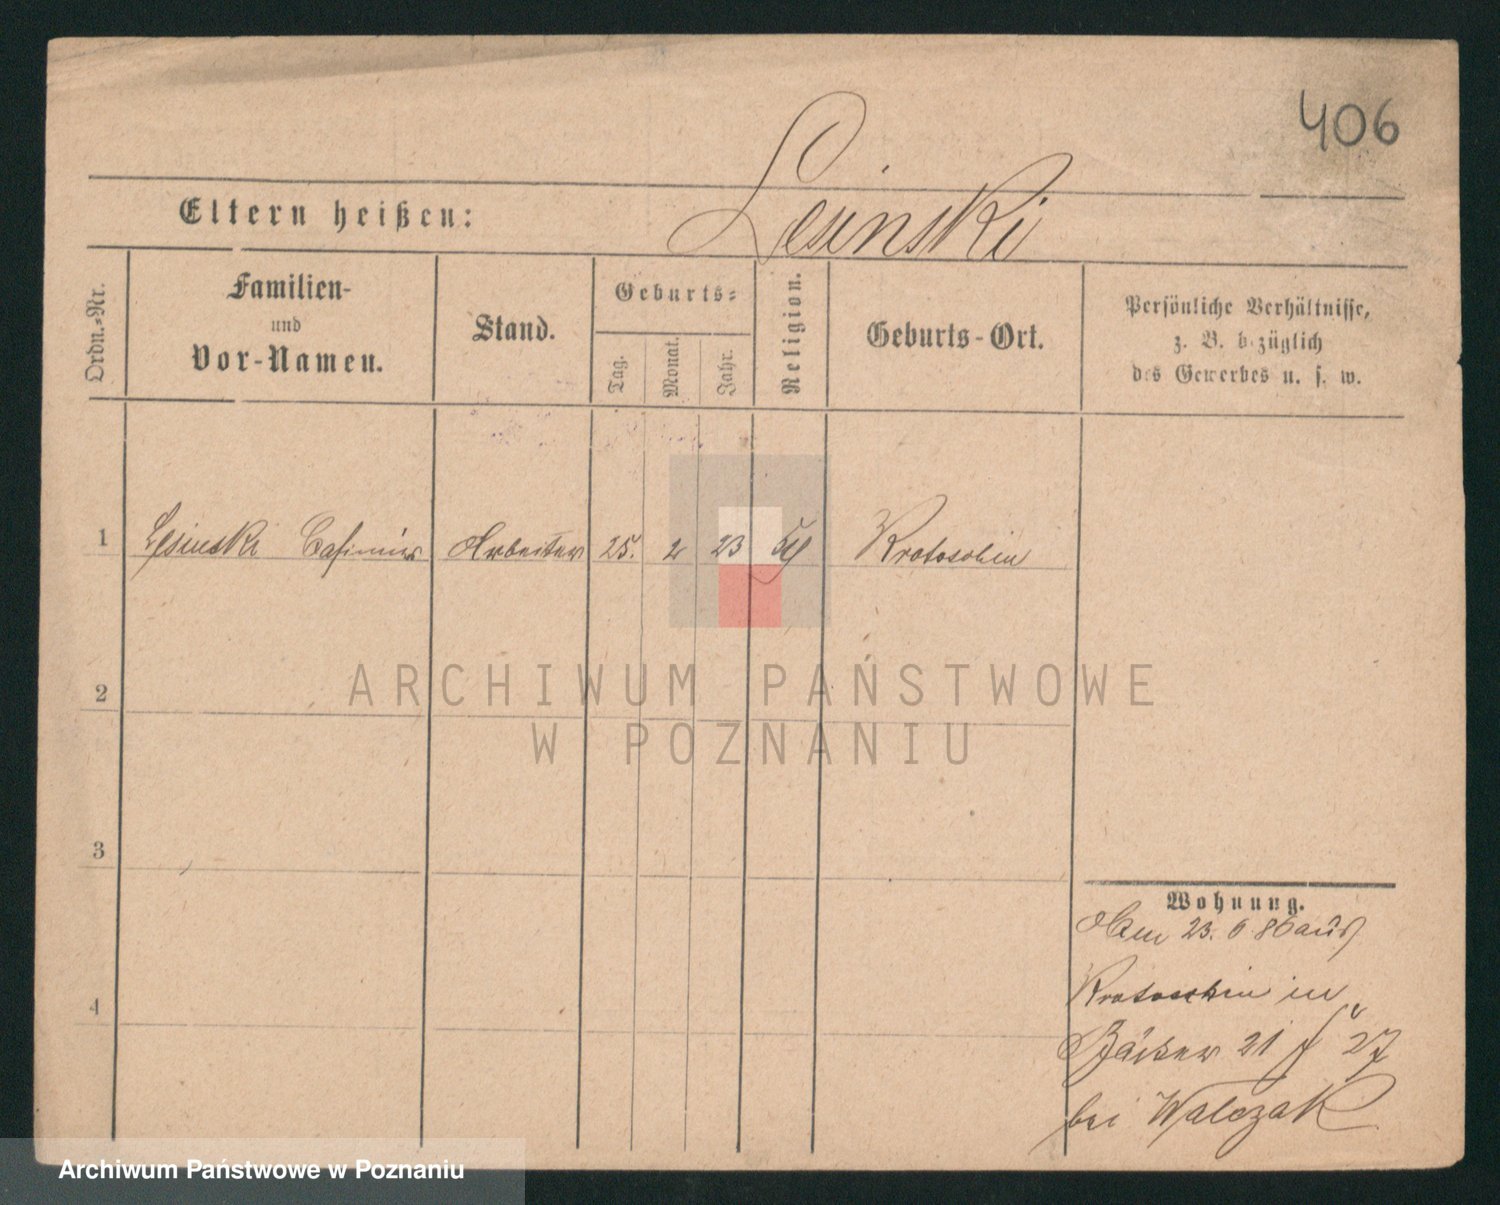 406
Lesinski
Eltern heißen:
Ordn.-Nr.
Familien-
und
Vor-Namen.
Stand.
Geburts-
Tag.
Monat.
Jahr.
Religion.
Geburts-Ort.
Persönliche Verhältnisse,
z. B. bezüglich
des Gewerbes u. s. w.
1 Lesinski Casimir Arbeiter 25. 2 23 Krotoschin
2
3
4
Wohnung.
Am 23. 6 86 aus
Krotoschin in
Bäcker 21 27
bei Walczak
ARCHIWUM PAŃSTWOWE
W POZNANIU
Archiwum Państwowe w Poznaniu